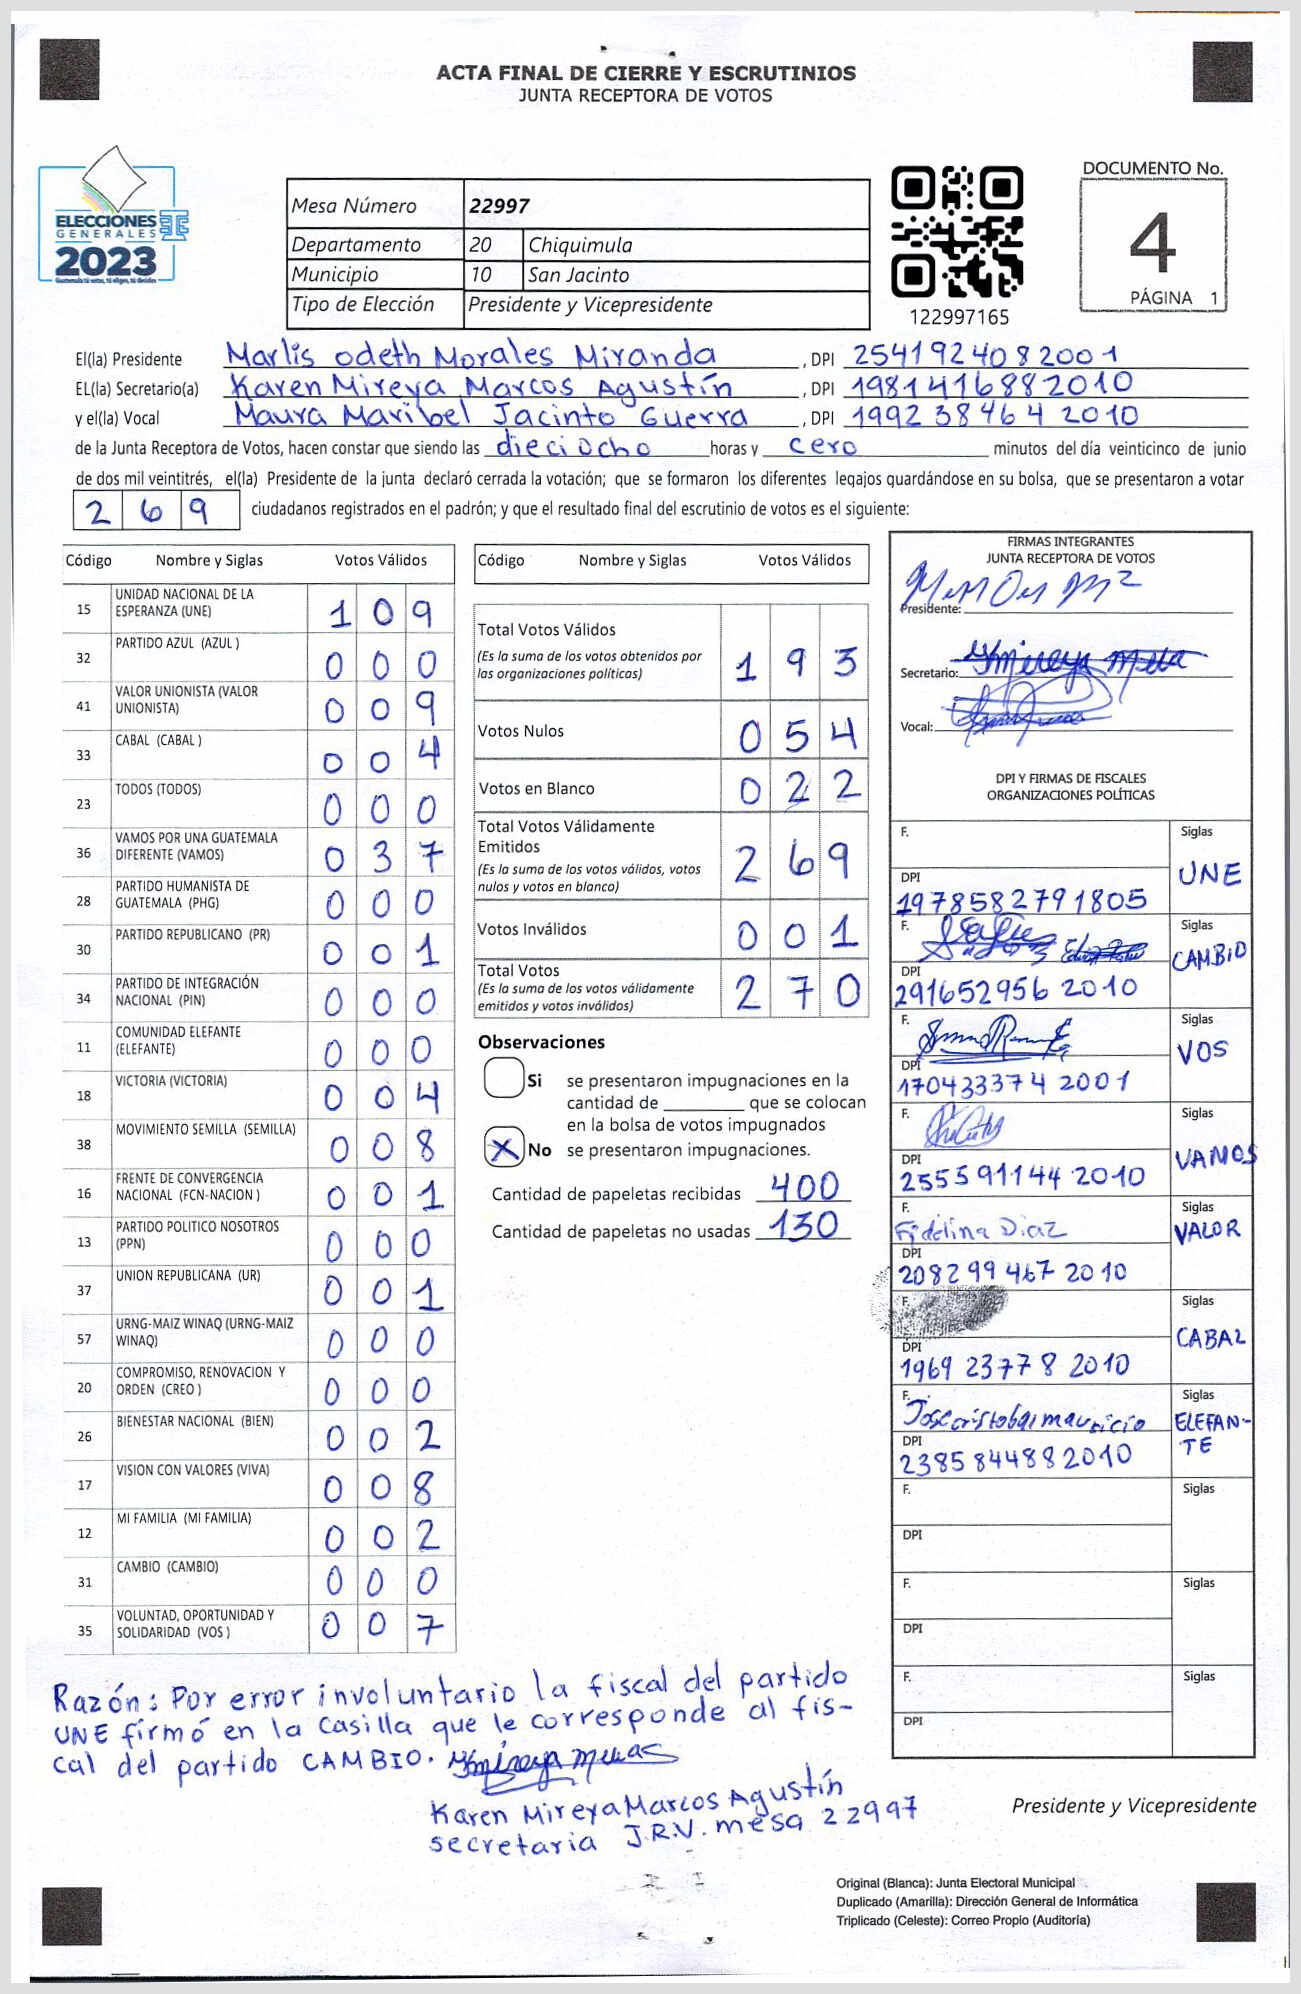 ACTA FINAL DE CIERRE Y ESCRUTINIOS
JUNTA RECEPTORA DE VOTOS
ELECCIONES
GENERALES
2023
Mesa Número 22997
Departamento 20 Chiquimula
Municipio 10 San Jacinto
Tipo de Elección Presidente y Vicepresidente
122997165
DOCUMENTO No.
4
PÁGINA 1
El(la) Presidente Marlis Odeth Morales Miranda, DPI 2541924082001
EL(la) Secretario(a) Karen Mireya Marcos Agustín, DPI 1981416882010
y el(la) Vocal Maura Maribel Jacinto Guerra, DPI 1992384642010
de la Junta Receptora de Votos, hacen constar que siendo las dieciocho horas y cero minutos del día veinticinco de junio
de dos mil veintitrés, el(la) Presidente de la junta declaró cerrada la votación; que se formaron los diferentes legajos guardándose en su bolsa, que se presentaron a votar
269 ciudadanos registrados en el padrón; y que el resultado final del escrutinio de votos es el siguiente:
Código Nombre y Siglas Votos Válidos
15 UNIDAD NACIONAL DE LA ESPERANZA (UNE) 109
32 PARTIDO AZUL (AZUL ) 000
41 VALOR UNIONISTA (VALOR UNIONISTA) 009
33 CABAL (CABAL ) 004
23 TODOS (TODOS) 000
36 VAMOS POR UNA GUATEMALA DIFERENTE (VAMOS) 037
28 PARTIDO HUMANISTA DE GUATEMALA (PHG) 000
30 PARTIDO REPUBLICANO (PR) 001
34 PARTIDO DE INTEGRACIÓN NACIONAL (PIN) 000
11 COMUNIDAD ELEFANTE (ELEFANTE) 000
18 VICTORIA (VICTORIA) 004
38 MOVIMIENTO SEMILLA (SEMILLA) 008
16 FRENTE DE CONVERGENCIA NACIONAL (FCN-NACION ) 001
13 PARTIDO POLITICO NOSOTROS (PPN) 000
37 UNION REPUBLICANA (UR) 001
57 URNG-MAIZ WINAQ (URNG-MAIZ WINAQ) 000
20 COMPROMISO, RENOVACION Y ORDEN (CREO ) 000
26 BIENESTAR NACIONAL (BIEN) 002
17 VISION CON VALORES (VIVA) 008
12 MI FAMILIA (MI FAMILIA) 002
31 CAMBIO (CAMBIO) 000
35 VOLUNTAD, OPORTUNIDAD Y SOLIDARIDAD (VOS ) 007
Código Nombre y Siglas Votos Válidos
Total Votos Válidos 193
(Es la suma de los votos obtenidos por
las organizaciones políticas)
Votos Nulos 054
Votos en Blanco 022
Total Votos Válidamente
Emitidos 269
(Es la suma de los votos válidos, votos
nulos y votos en blanco)
Votos Inválidos 001
Total Votos 270
(Es la suma de los votos válidamente
emitidos y votos inválidos)
Observaciones
Si se presentaron impugnaciones en la
cantidad de ________ que se colocan
en la bolsa de votos impugnados
X No se presentaron impugnaciones.
Cantidad de papeletas recibidas 400
Cantidad de papeletas no usadas 130
FIRMAS INTEGRANTES
JUNTA RECEPTORA DE VOTOS
Presidente:
Secretario:
Vocal:
DPI Y FIRMAS DE FISCALES
ORGANIZACIONES POLÍTICAS
F. Siglas
DPI 1978582791805 UNE
F. Siglas
DPI 2916529562010 CAMBIO
F. Siglas
DPI 1704333742001 VOS
F. Siglas
DPI 2555911442010 VAMOS
F. Fidelina Diaz Siglas
DPI 2082994672010 VALOR
F. Siglas
DPI 1969237782010 CABAL
F. Jose cristobal mauricio Siglas
DPI 2385844882010 ELEFAN-
TE
F. Siglas
DPI
F. Siglas
DPI
F. Siglas
DPI
Razón: Por error involuntario la fiscal del partido
UNE firmó en la casilla que le corresponde al fis-
cal del partido CAMBIO.
Karen Mireya Marcos Agustín
secretaria J.R.V. mesa 22997
Presidente y Vicepresidente
Original (Blanca): Junta Electoral Municipal
Duplicado (Amarilla): Dirección General de Informática
Triplicado (Celeste): Correo Propio (Auditoría)